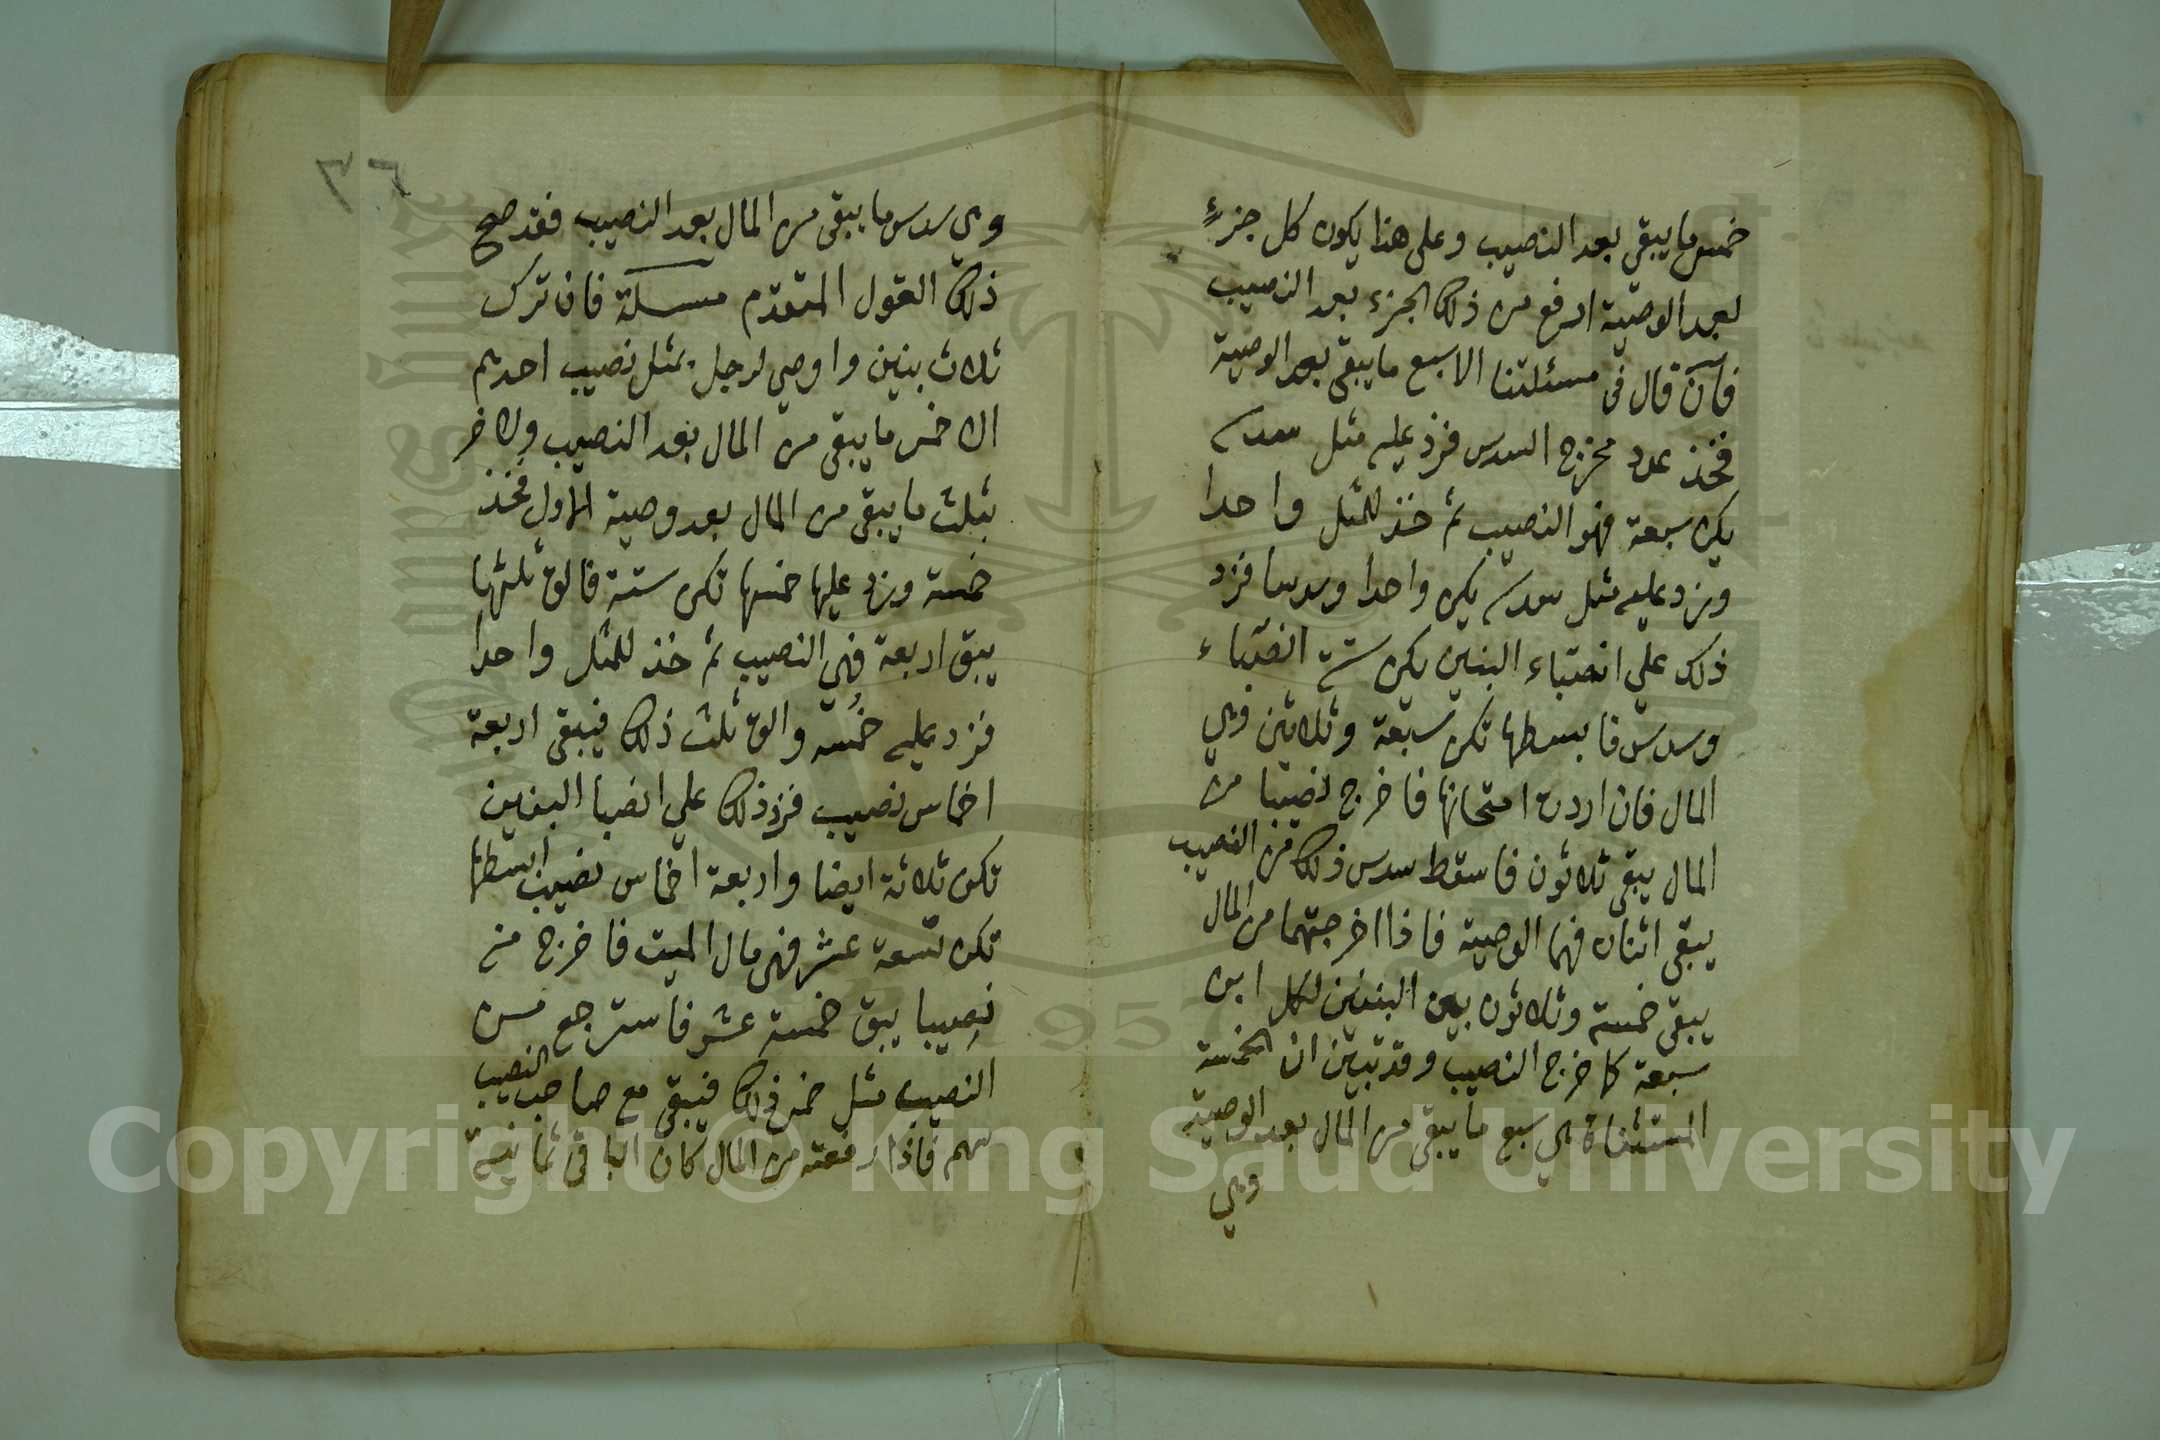 خمس ما يبقى بعد النصيب وعلى هذا يكون كل جزءٍ
بعد الوصية ارفع من ذلك الجزء بعد النصيب
فان قال في مسئلتنا الا سبع ما يبقى بعد الوصية
فخذ عدد مخرج السدس فزد عليه مثل سدسه
يكن سبعة فهو النصيب ثم خذ للمثل واحدا
وزد عليه مثل سدسه يكن واحدا وسدسا فزد
ذلك على انصباء البنين يكن ستة انصباء
وسدس فابسطها تكن سبعة وثلاثين وهي
المال فان اردت امتحانها فاخرج نصيبا من
المال يبقى ثلاثون فاسقط سدس ذلك من النصيب
يبقى اثنان فهما الوصية فاذا اخرجتهما من المال
يبقى خمسة وثلاثون بين البنين لكل ابن
سبعة كما خرج النصيب وقد تبين ان الخمسة
المستثناة هي سبع ما يبقى من المال بعد الوصية
وهي
٢٦
وهي سدس ما يبقى من المال بعد النصيب فقد صح
ذلك القول المتقدم مسئلة فان ترك
ثلاث بنين واوصى لرجل بمثل نصيب احدهم
الا خمس ما يبقى من المال بعد النصيب ولاخر
بثلث ما يبقى من المال بعد وصية الاول فخذ
خمسة وزد عليها خمسها تكن ستة فالق ثلثها
يبق اربعة فهي النصيب ثم خذ للمثل واحدا
فزد عليه خمسه والق ثلث ذلك فيبقى اربعة
اخماس نصيب فزد ذلك على انصبا البنين
تكن ثلاثة ايضا واربعة اخماس نصيب ابسطها
تكن تسعة عشر فهي مال الميت فاخرج منه
نصيبا يبق خمسة عشر فاسترجع من
النصيب مثل خمس ذلك فيبقى مع صاحب النصيب
سهم فاذا رفعته من المال كان الباقي ثمانية
Copyright © King Saud University
King Saud University
1957